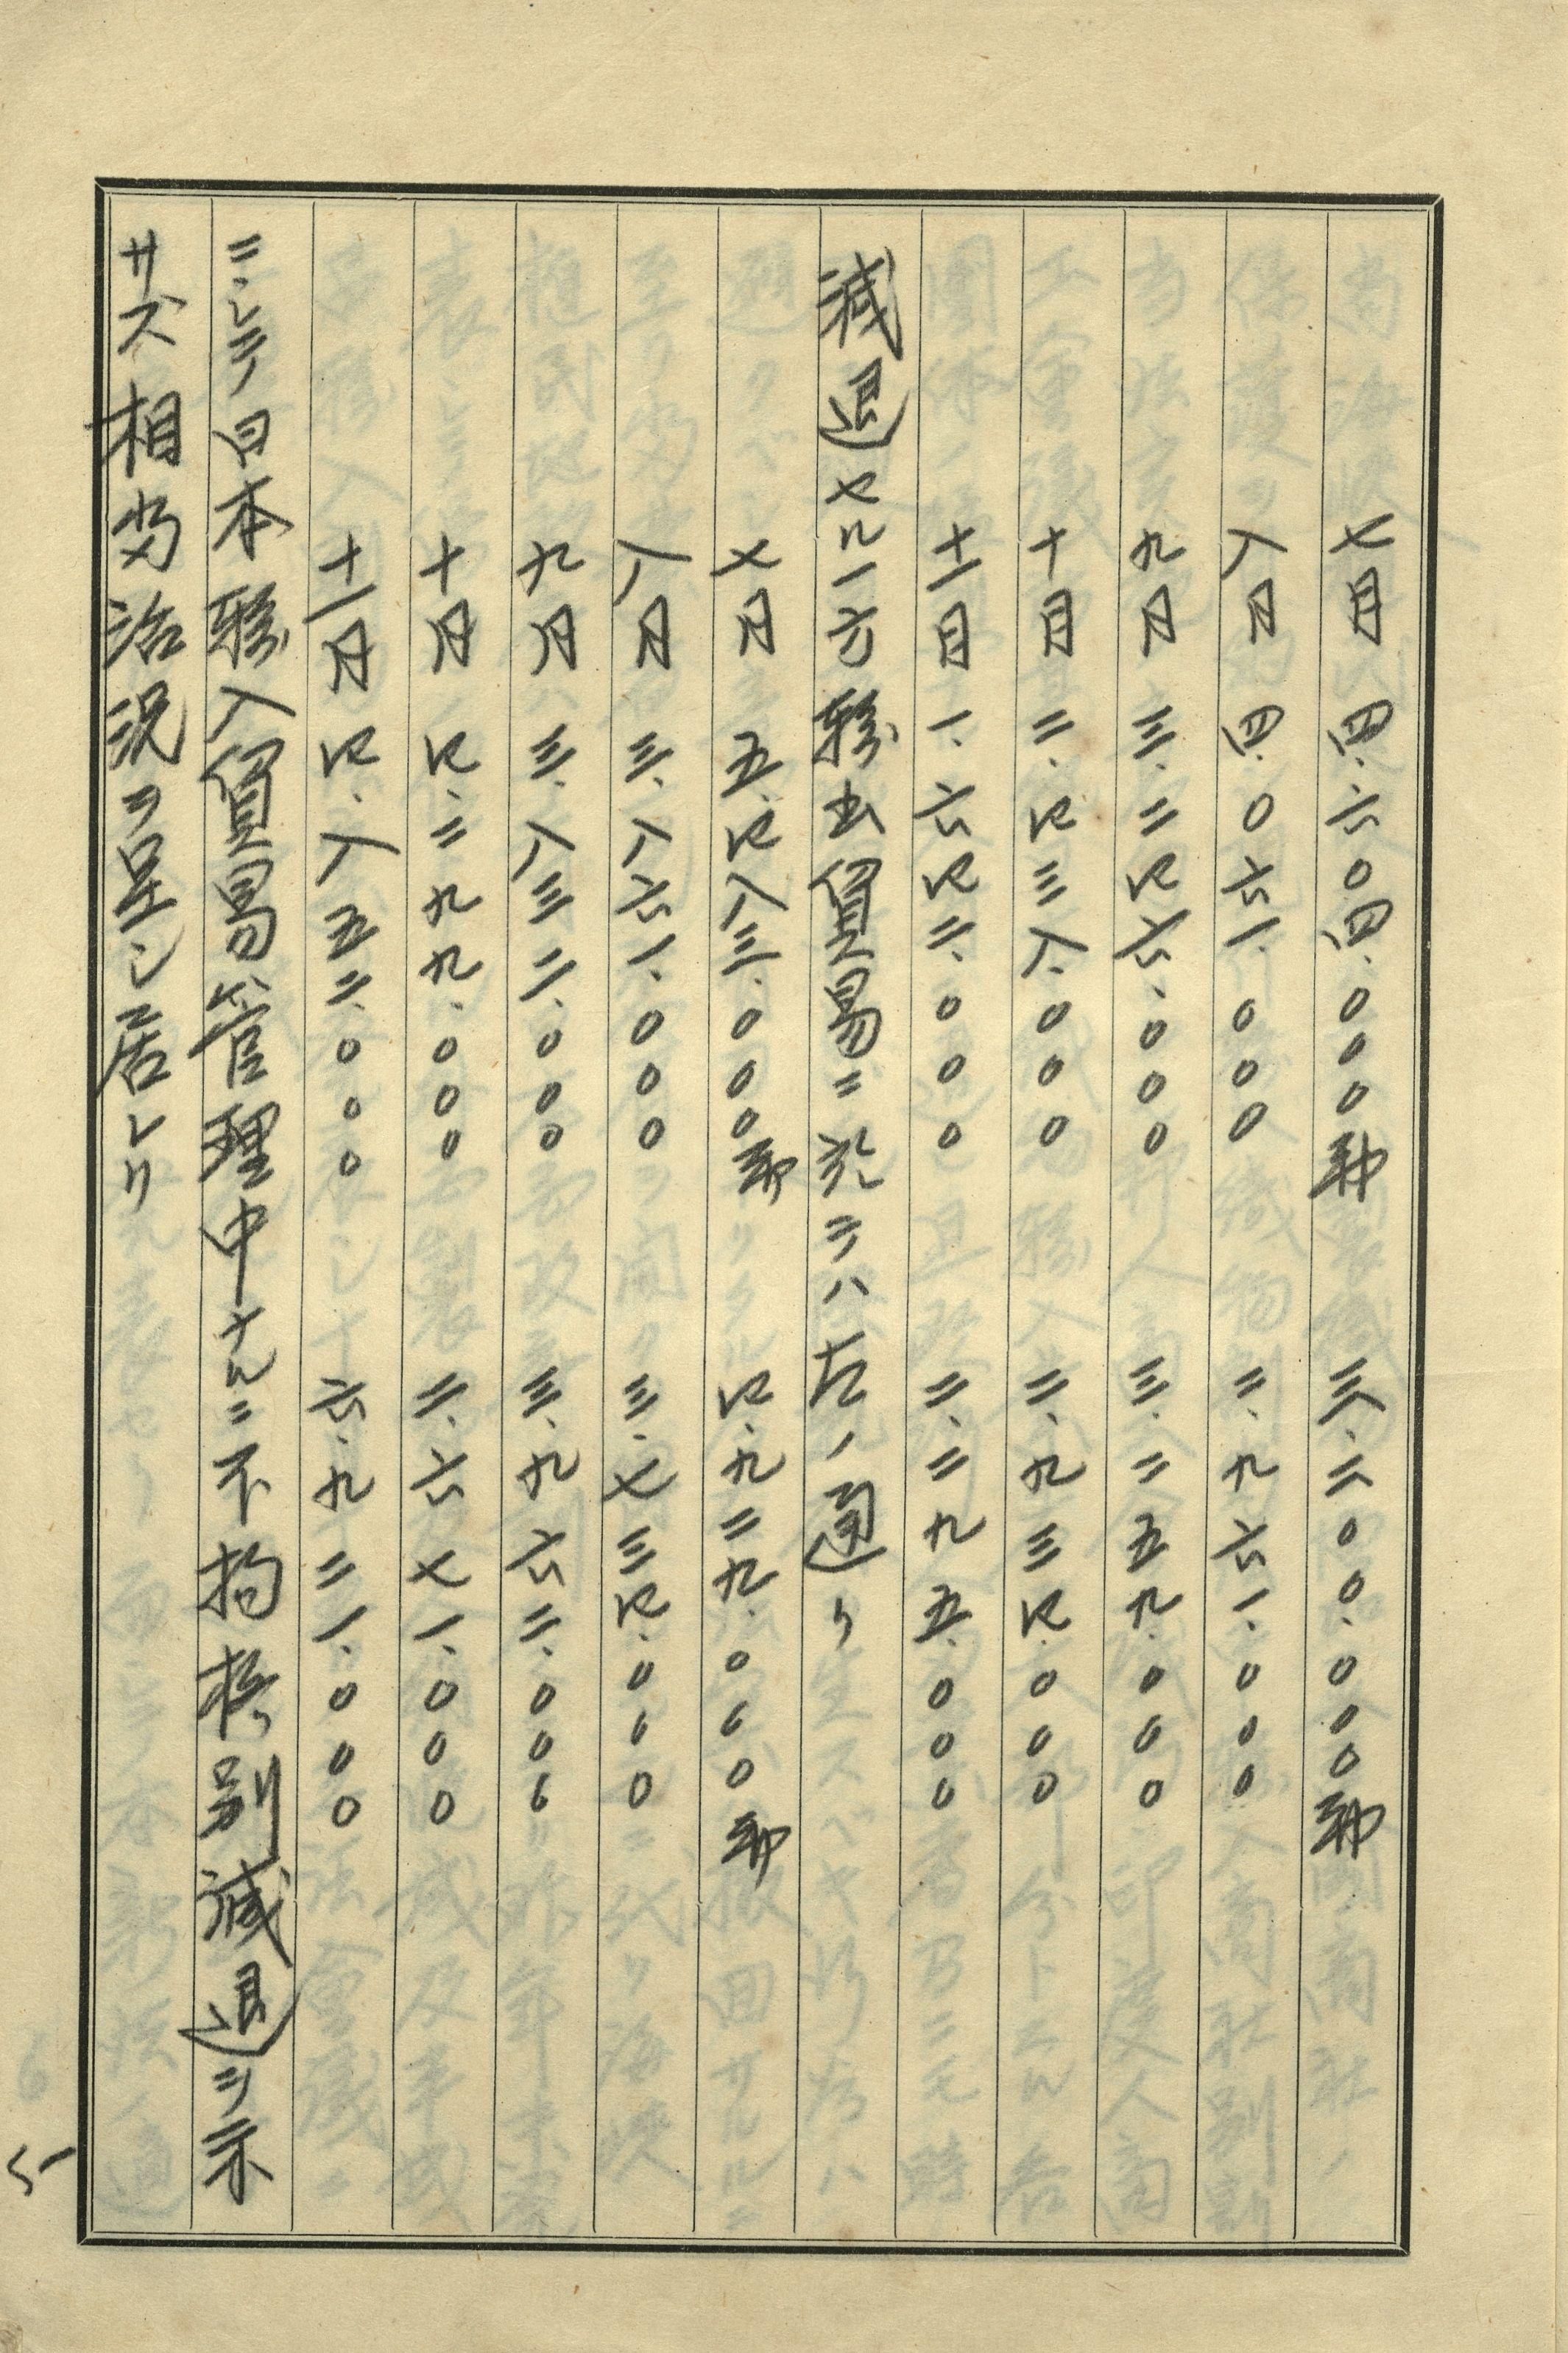 七月　四、六〇四、〇〇〇弗　三、二〇〇、〇〇〇弗
八月　四、〇六一、〇〇〇　二、九六一、〇〇〇
九月　三、二四六、〇〇〇　三、二五九、〇〇〇
十月　二、四三八、〇〇〇　二、九三四、〇〇〇
十一月　一、六四二、〇〇〇　二、二九五、〇〇〇
減退セル一方移出貿易ニ於テハ左ノ通リ
七月　五、四八三、〇〇〇弗　四、九二九、〇〇〇弗
八月　三、八六一、〇〇〇　三、七三四、〇〇〇
九月　三、八三二、〇〇〇　三、九六二、〇〇〇
十月　四、二九九、〇〇〇　二、六七一、〇〇〇
十一月　四、八五二、〇〇〇　六、九二一、〇〇〇
ニシテ日本移入貿易管理中ナルニ不拘格別減退ヲ示
サズ相当活況ヲ呈シ居レリ
5